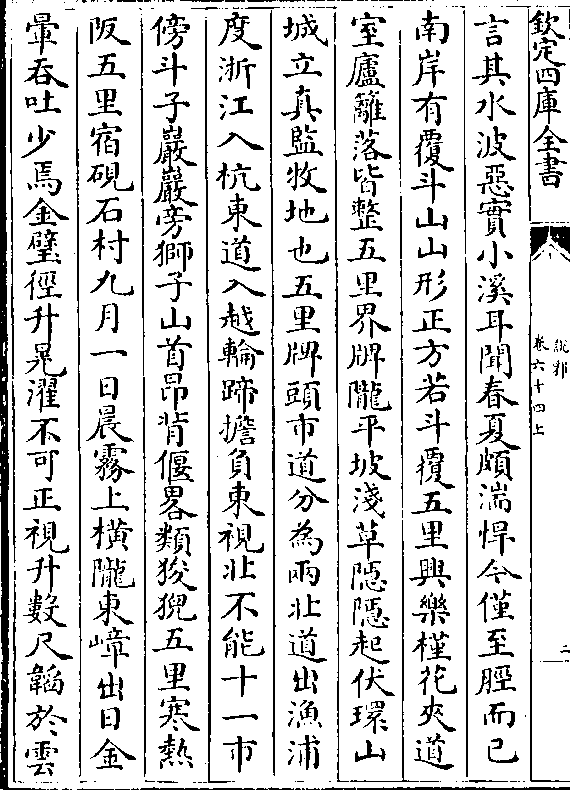 欽定四庫全書
説郛
卷六十四上
二
言其水波惡實小溪耳聞春夏頗湍悍今僅至脛而已
南岸有覆斗山山形正方若斗覆五里興樂槿花夾道
室廬籬落皆整五里界牌隴平坡淺草隠隠起伏環山
城立真監牧地也五里牌頭市道分為兩北道出漁浦
度浙江入杭東道入越輪蹄擔負東視北不能十一市
傍斗子巖巖旁獅子山首昂背偃畧類狻猊五里寒熱
阪五里宿硯石村九月一日晨霧上横隴東嶂出日金
暈吞吐少焉金璧徑升晃濯不可正視升數尺韜於雲